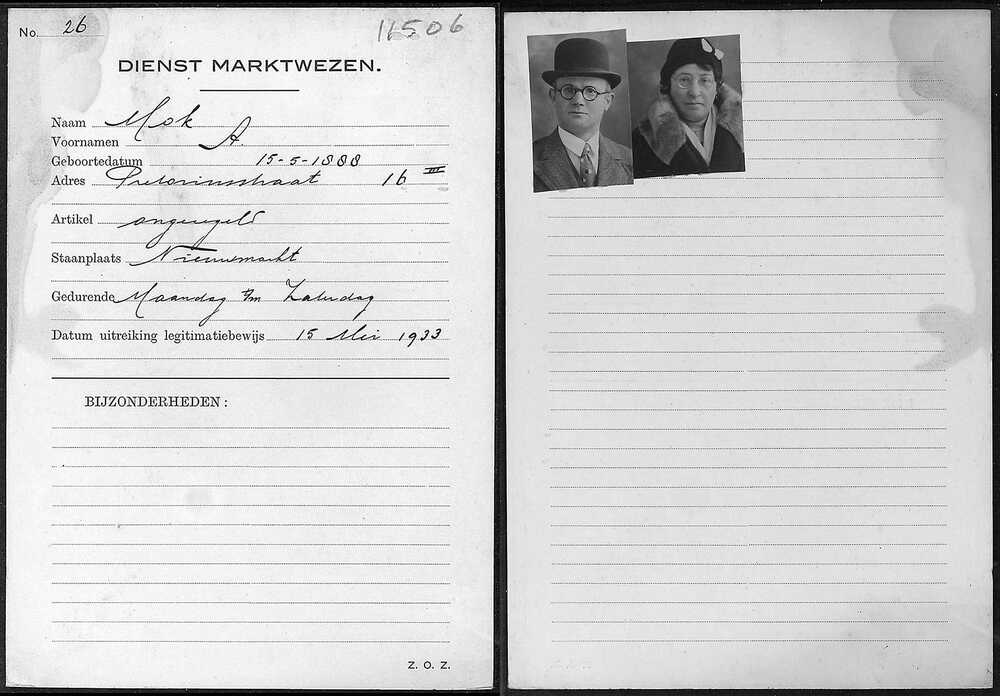 No. 26
11506
DIENST MARKTWEZEN.
Naam Mok
Voornamen A.
Geboortedatum 15-5-1888
Adres Pretoriusstraat 16 III
Artikel ongeregeld
Staanplaats Nieuwmarkt
Gedurende Maandag t/m Zaterdag
Datum uitreiking legitimatiebewijs 15 Mei 1933
BIJZONDERHEDEN:
Z. O. Z.